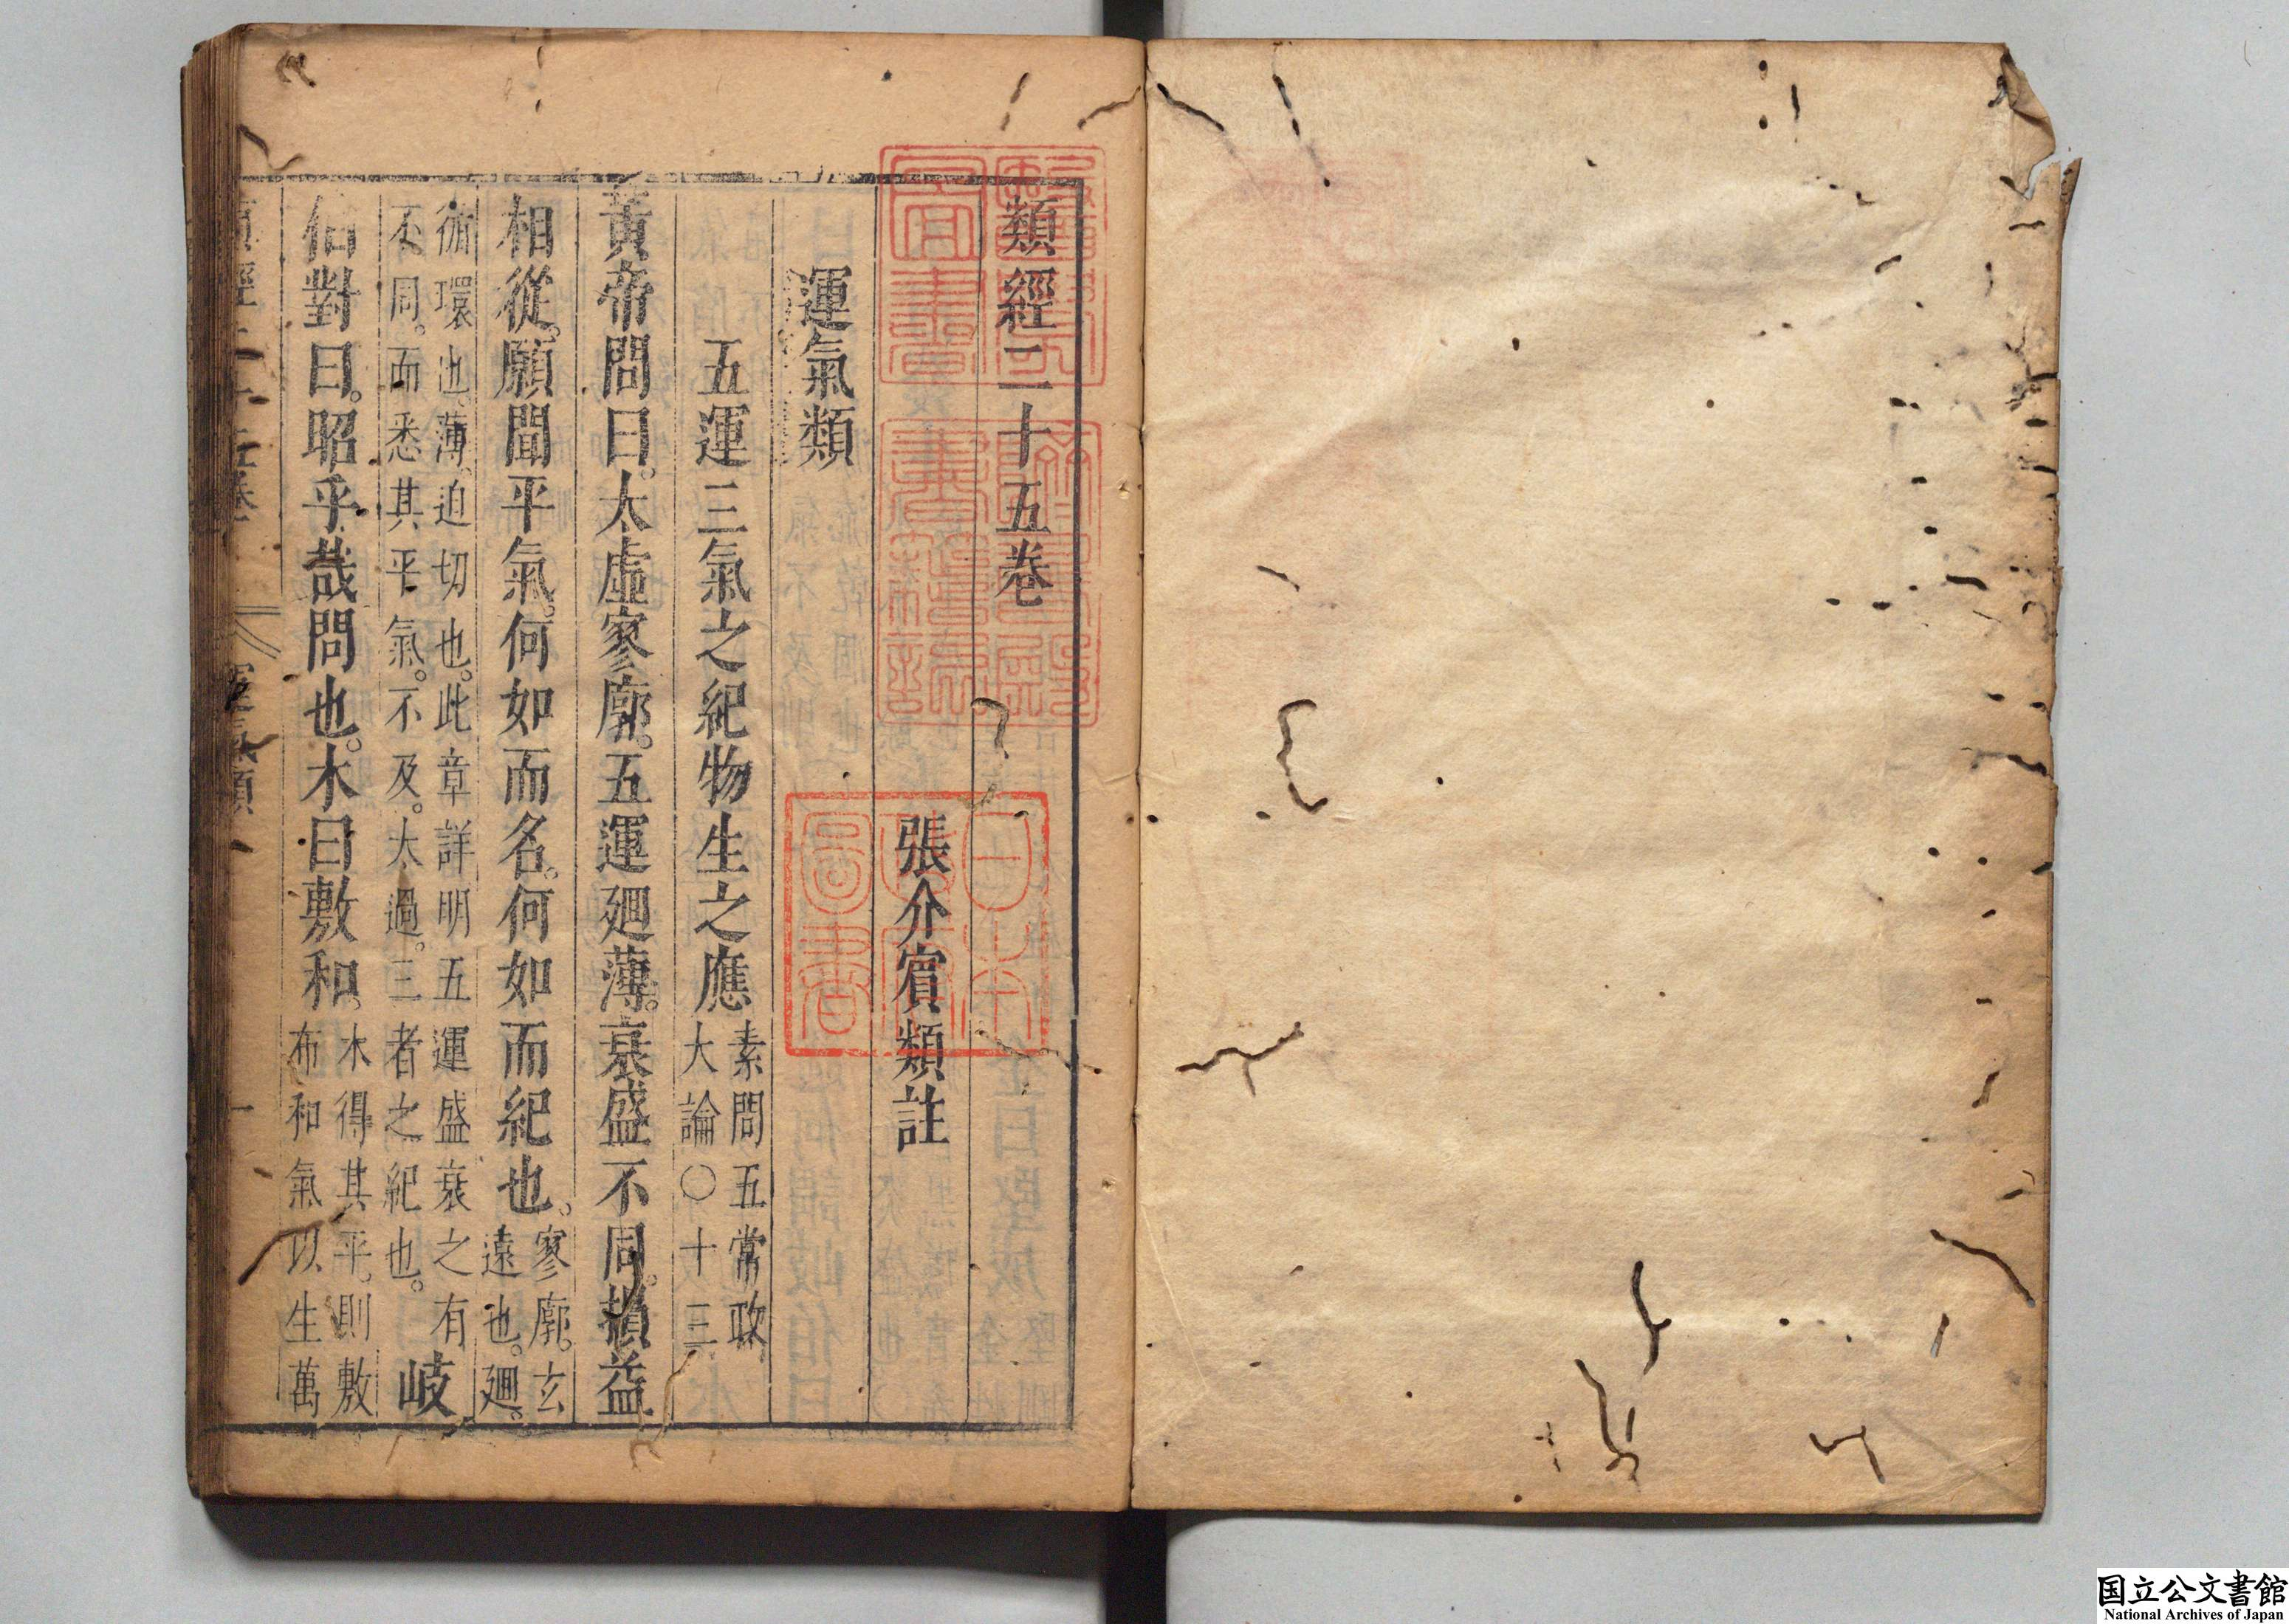 類經二十五卷
張介賔類註
運氣類
五運三氣之紀物生之應
素問五常政
大論○十三
黃帝問曰。太虛寥廓。五運廻薄。衰盛不同。損益
相從。願聞平氣。何如而名。何如而紀也。
寥廓。玄
遠也。廻。
循環也。薄。迫切也。此章詳明五運盛衰之有
不同。而悉其平氣。不及。太過。三者之紀也。
岐
伯對曰。昭乎哉問也。木曰敷和。
木得其平。則敷
布和氣以生萬
類經二十五卷
運氣類
一
日本
政府
圖書
国立公文書館
National Archives of Japan